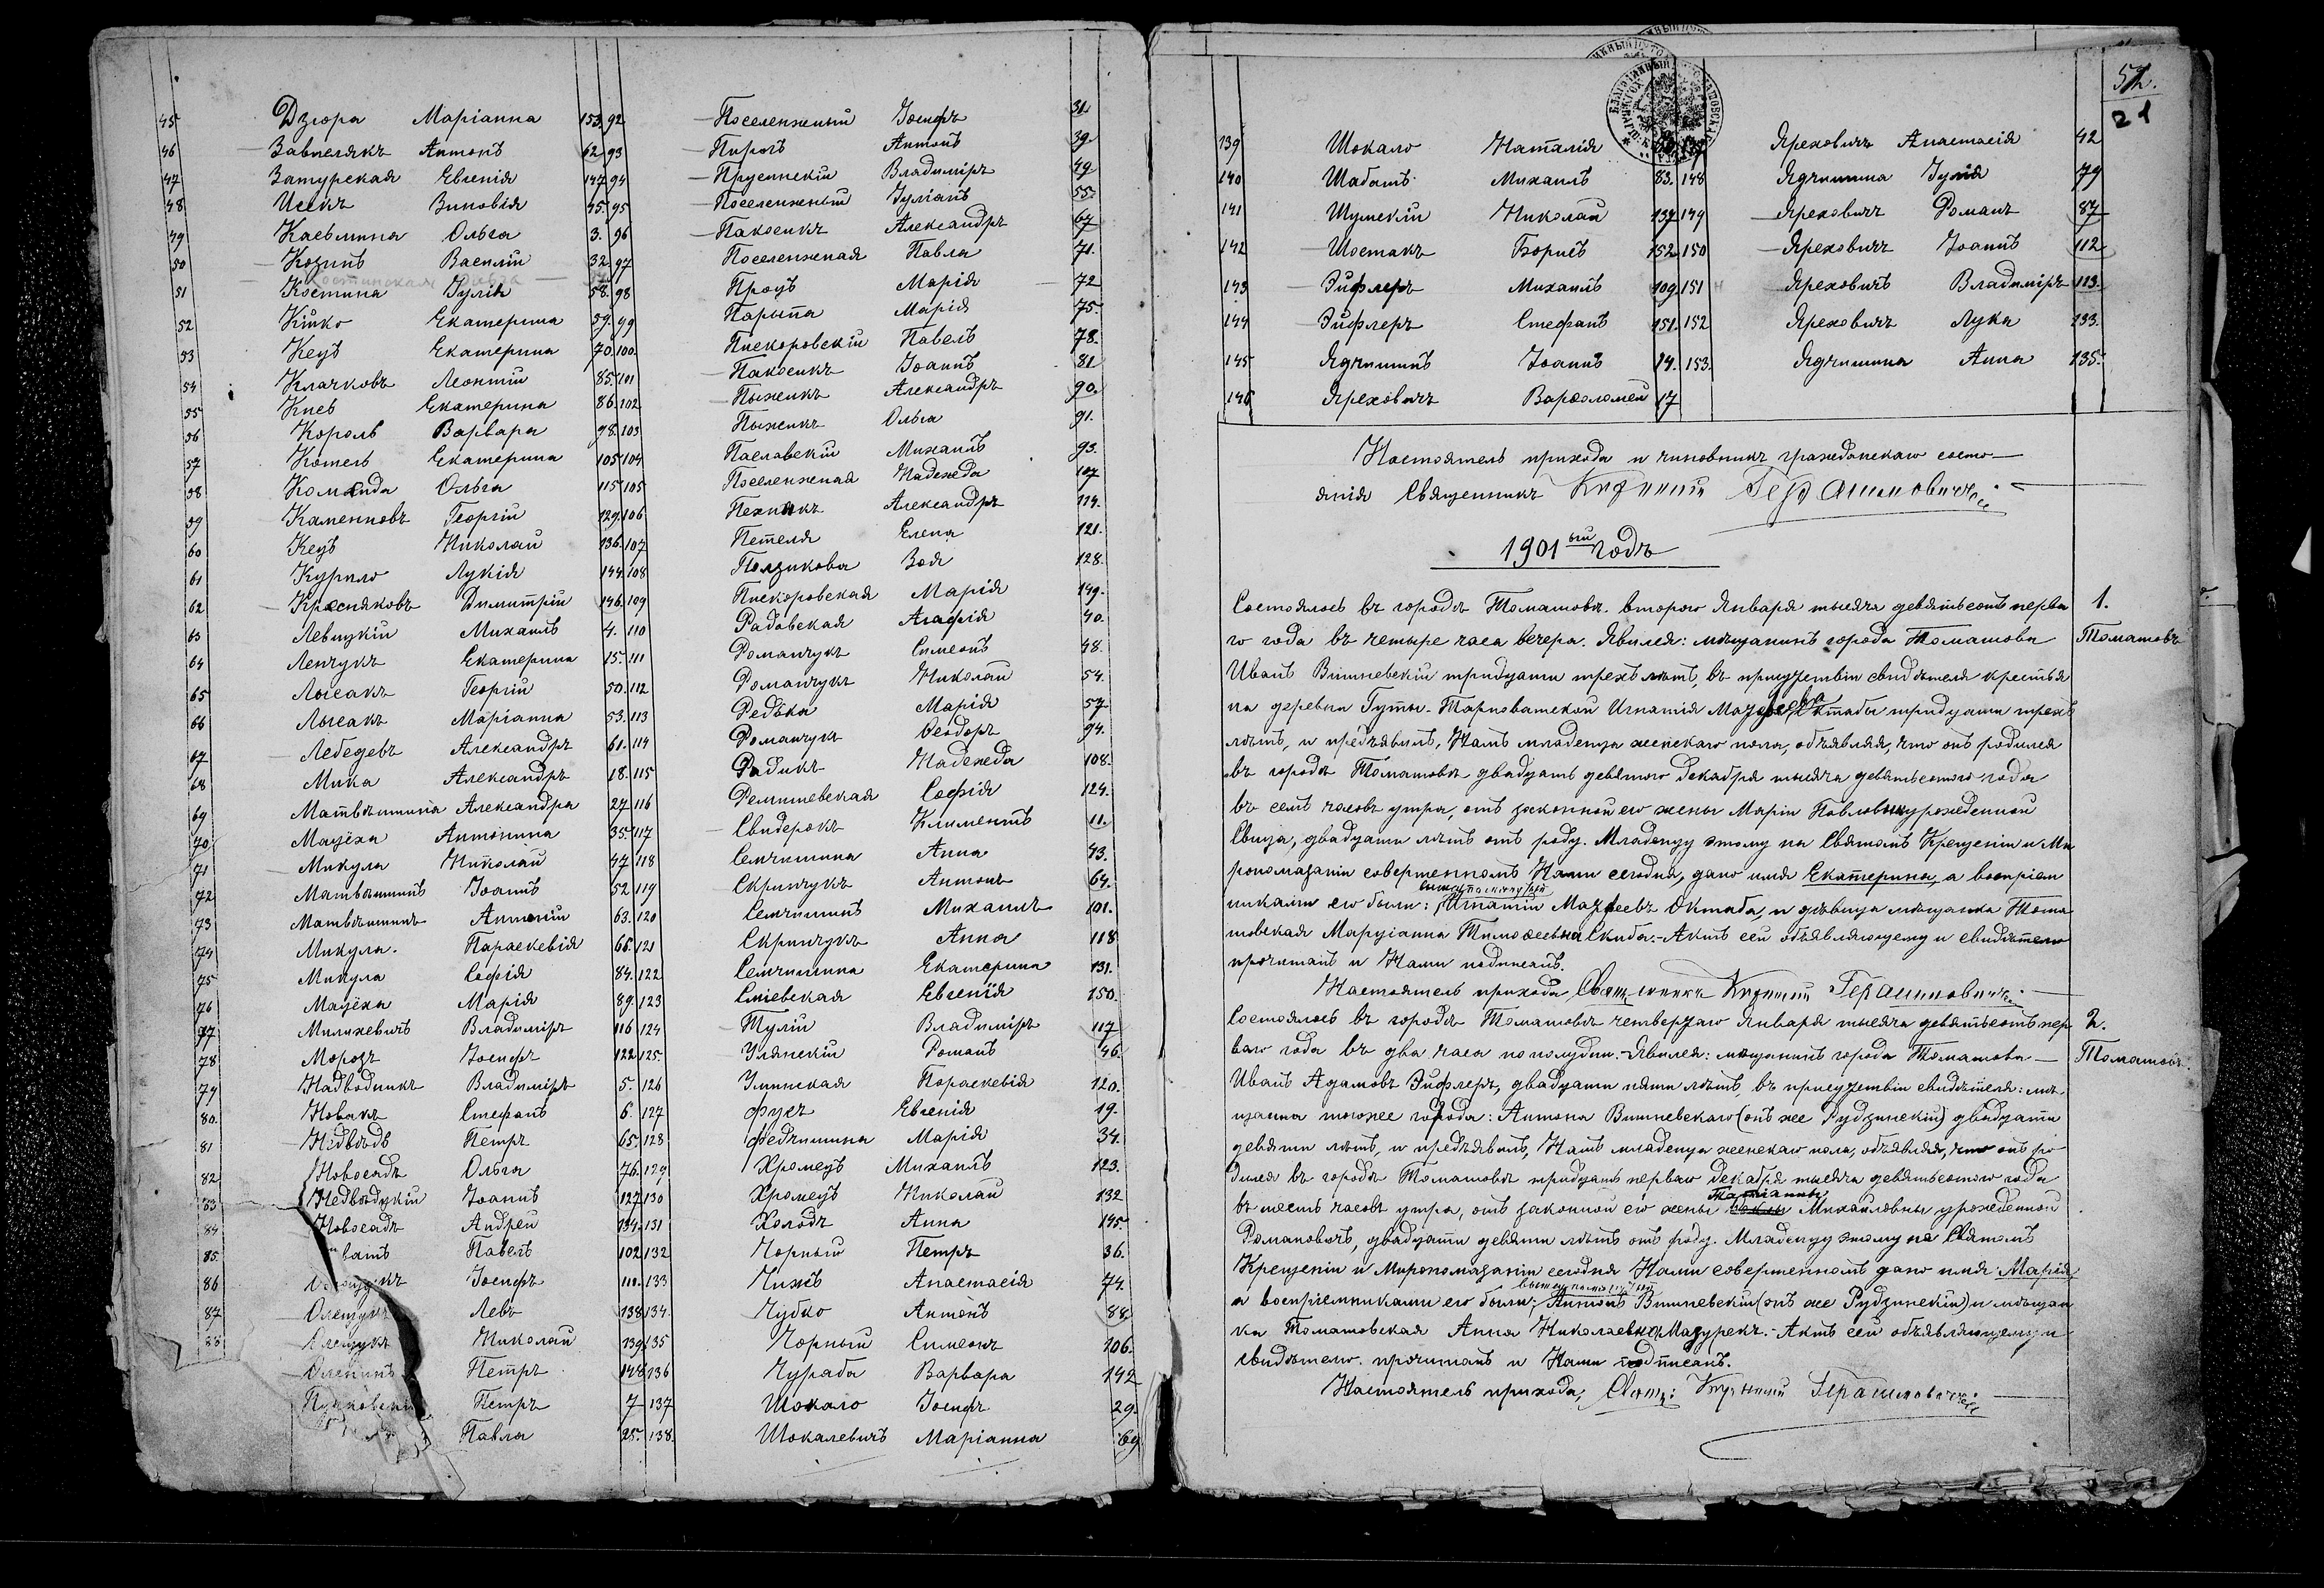 45 Дзюра Маріанна 153.
46 Завпелякъ Антонъ 62
47 Затурская Евгенія 147
48 Искъ Зиновія 45.
49 Каевлина Ольга 3.
50 Козинъ Василій 32
51 Костина Іулія 58.
52 Кішко Екатерина 59.
53 Кецъ Екатерина 70.
54 Клачковъ Леонтій 85.
55 Киев Екатерина 86.
56 Король Варвара 98.
57 Котель Екатерина 105
58 Команда Ольга 115
59 Каменковъ Георгій 129.
60 Кецъ Николай 136.
61 Курило Лукія 144.
62 Красняковъ Димитрій 146.
63 Левицкій Михаилъ 4.
64 Ленчукъ Екатерина 15.
65 Лысакъ Георгій 50.
66 Лысакъ Маріанна 53.
67 Лебедевъ Александръ 61.
68 Мика Александръ 18.
69 Матвѣишина Александра 27
70 Мацёха Антонина 35.
71 Микула Николай 47
72 Матвѣишинъ Іоаннъ 52
73 Матвѣишинъ Антоній 63.
74 Микула. Параскевія 66.
75 Микула Софія 84.
76 Мацёха Марія 89.
77 Милихевичъ Владиміръ 116
78 Морозъ Іосифъ 122
79 Надводникъ Владиміръ 5.
80. Новакъ Стефанъ 6.
81 Недвѣдь Петръ 65
82 Новосадъ Ольга 76.
83 Недвѣдцкій Іоаннъ 127
84 Новосадъ Андрей 134.
85. Павелъ 102
86 Іосифъ 111.
87 Олещукъ Левъ 138
88 Олещукъ Николай 139
Петръ 148
Петръ 7
Павла 25.
92 Поселенжный Іосифъ 31.
93 Пирогъ Антонъ 39.
94 Прусинскій Владиміръ 49
95 Поселенжный Іуліанъ 55.
96 Пакосикъ Александръ 67
97 Поселенжная Павла 71.
98 Процъ Марія 72
99 Парыпа Марія 75.
100. Пискоровскій Павелъ 78.
101 Пакосикъ Іоаннъ 81
102 Пыжикъ Александръ 90.
103 Пыжикъ Ольга 91.
104 Паславскій Михаилъ 93.
105 Поселенжная Надежда 107
106 Пехникъ Александръ 114.
107 Петеля Елена 121.
108 Ползикова Зоя 128.
109 Пискоровская Марія 149.
110 Радовская Агафія 40.
111 Романчукъ Симеонъ 48.
112 Романчукъ Николай 54.
113 Редька Марія 57
114 Романчукъ Ѳеодоръ 94.
115 Радикъ Надежда 108.
116 Ремишевская Софія 124.
117 Свидерокъ Климентъ 11.
118 Семчишина Анна 43.
119 Скринчукъ Антонъ 64.
120 Семчишинъ Михаилъ 101.
121 Скринчукъ Анна 118
122 Семчишина Екатерина 131.
123 Сніевская Евгенія 150.
124 Тулій Владиміръ 117
125. Улянскій Романъ 46.
126 Улинская Параскевія 120.
127 Фусъ Евгенія 19.
128 Федчишина Марія 34.
129 Хромецъ Михаилъ 123.
130 Хромецъ Николай 132
131 Холодъ Анна 145
132 Чорный Петръ 36.
133 Чихъ Анастасія 74.
134. Чубко Антонъ 88.
135 Чорный Симеонъ 106.
136 Чурада Варвара 142
137 Шокало Іосифъ 29.
138. Шокалевичъ Маріанна 69
52.
21
139 Шокало Наталія
140 Шабатъ Михаилъ 83.
141 Шумскій Николай 137
142 Шостакъ Борисъ 152
143 Эйфлеръ Михаилъ 109
144 Эйфлеръ Стефанъ 151.
145 Ядчишинъ Іоаннъ 14.
146 Яреховичъ Варѳоломей 17
147 Яреховичъ Анастасія 42
148 Ядчишина Іулія 79
149 Яреховичъ Романъ 87
150 Яреховичъ Іоаннъ 112
151 Яреховичъ Владиміръ 113.
152 Яреховичъ Лука 133.
153. Ядчишина Анна 135.
Настоятель прихода и чиновникъ гражданскаго состо-
янія Священникъ Герасимовичъ
1901ый годъ
1.
Томашовъ
Состоялось въ городѣ Томашовѣ второго Января тысяча девятьсотъ перва
го года въ четыре часа вечера. Явился: мѣщанинъ города Томашова
Иванъ Вишневскій тридцати трехъ лѣтъ, въ присутствіи свидѣтеля крестья
на деревни Гуты-Тарноватской Игнатія Октабы тридцати трехъ
лѣтъ, и предъявилъ, Намъ младенца женскаго пола, объявляя, что онъ родился
въ городѣ Томашовѣ двадцать девятого декабря тысяча девятьсотого года
въ семь часовъ утра, отъ законной его жены Маріи Павловны урожденной
Свица, двадцати лѣтъ отъ роду. Младенцу этому на Святомъ Крещеніи и Ми
ропомазаніи совершенномъ Нами сегодня, дано имя Екатерина, а воспріем
никами его были: Игнатій Октаба, и дѣвица мѣщанка Тома
шовская Маруіанна Тимоѳеевна Скиба.- Актъ сей объявляющему и свидѣтелю
прочитанъ и Нами подписанъ.
Настоятель прихода, Священникъ Герасимовичъ
2.
Томашовъ.
Состоялось въ городѣ Томашовѣ четвертаго Января тысяча девятьсотъ пер
ваго года въ два часа пополудни.- Явился: мѣщанинъ города Томашова-
Иванъ Адамовъ Эйфлеръ, двадцати пяти лѣтъ, въ присутствіи свидѣтеля: мѣ
щанина тогоже города: Антона Вишневскаго (онъ же Рудзинскій) двадцати
девяти лѣтъ, и предъявилъ, Намъ младенца женскаго пола, объявляя, что онъ ро
дился въ городѣ Томашовѣ тридцать перваго декабря тысяча девятьсотого года
въ шесть часовъ утра, отъ законной его жены Татіанны Михайловны урожденной
Романовичъ, двадцати девяти лѣтъ отъ роду. Младенцу этому на Святомъ
Крещеніи и Миропомазаніи сегодня Нами совершенномъ дано имя Марія,
а воспріемниками его были: Антонъ Вишневскій (онъ же Рудзинскій) и мѣщан
ка Томашовская Анна Николаевна Мазурекъ.- Актъ сей объявляющему и
свидѣтелю прочитанъ и Нами подписанъ.
Настоятель прихода, Свящ: Герасимовичъ